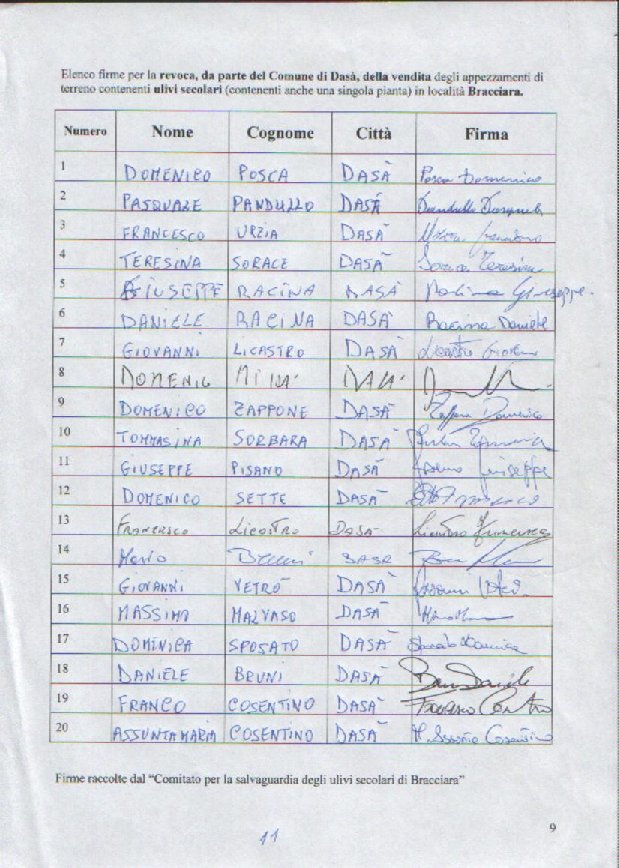 Elenco firme per la revoca, da parte del Comune di Dasà, della vendita degli appezzamenti di
terreno contenenti ulivi secolari (contenenti anche una singola pianta) in località Bracciara.
Numero Nome Cognome Città Firma
1 DOMENICO POSCA DASÀ Posca Domenico
2 PASQUALE PANDULLO DASÀ
3 FRANCESCO URZIA DASÀ
4 TERESINA SORACE DASÀ Sorace Teresina
5 GIUSEPPE RACINA DASÀ Racina Giuseppe
6 DANIELE RACINA DASÀ Racina Daniele
7 GIOVANNI LICASTRO DASÀ
8
9 DOMENICO ZAPPONE DASÀ Zappone Domenico
10 TOMMASINA SORBARA DASÀ
11 GIUSEPPE PISANO DASÀ Pisano Giuseppe
12 DOMENICO SETTE DASÀ
13 FRANCESCO LICASTRO DASÀ Licastro Francesco
14 Mario
15 GIOVANNI VETRÒ DASÀ
16 MASSIMA MALVASO DASÀ
17 DOMINICA SPOSATO DASÀ
18 DANIELE BRUNI DASÀ Bruni Daniele
19 FRANCO COSENTINO DASÀ
20 ASSUNTA MARIA COSENTINO DASÀ Cosentino
Firme raccolte dal “Comitato per la salvaguardia degli ulivi secolari di Bracciara”
9
11